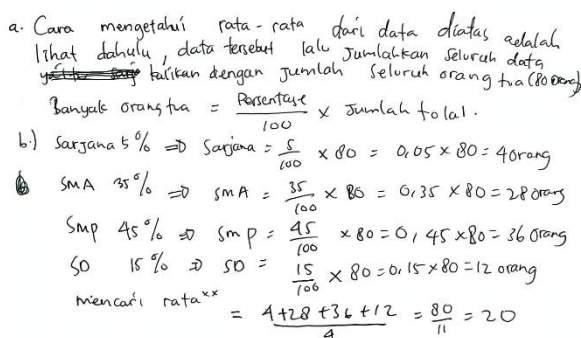 a. Cara mengetahui rata-rata dari data diatas adalah
lihat dahulu, data tersebut lalu Jumlahkan Seluruh data
kalikan dengan jumlah seluruh orang tua (80 orang)
Banyak orang tua = Persentase / 100 x Jumlah total.
b.) Sarjana 5% => Sarjana = 5/100 x 80 = 0,05 x 80 = 4 orang
SMA 35% => SMA = 35/100 x 80 = 0,35 x 80 = 28 orang
Smp 45% => smp = 45/100 x 80 = 0,45 x 80 = 36 orang
SD 15% => SD = 15/100 x 80 = 0,15 x 80 = 12 orang
mencari rata** = 4+28+36+12 / 4 = 80/11 = 20